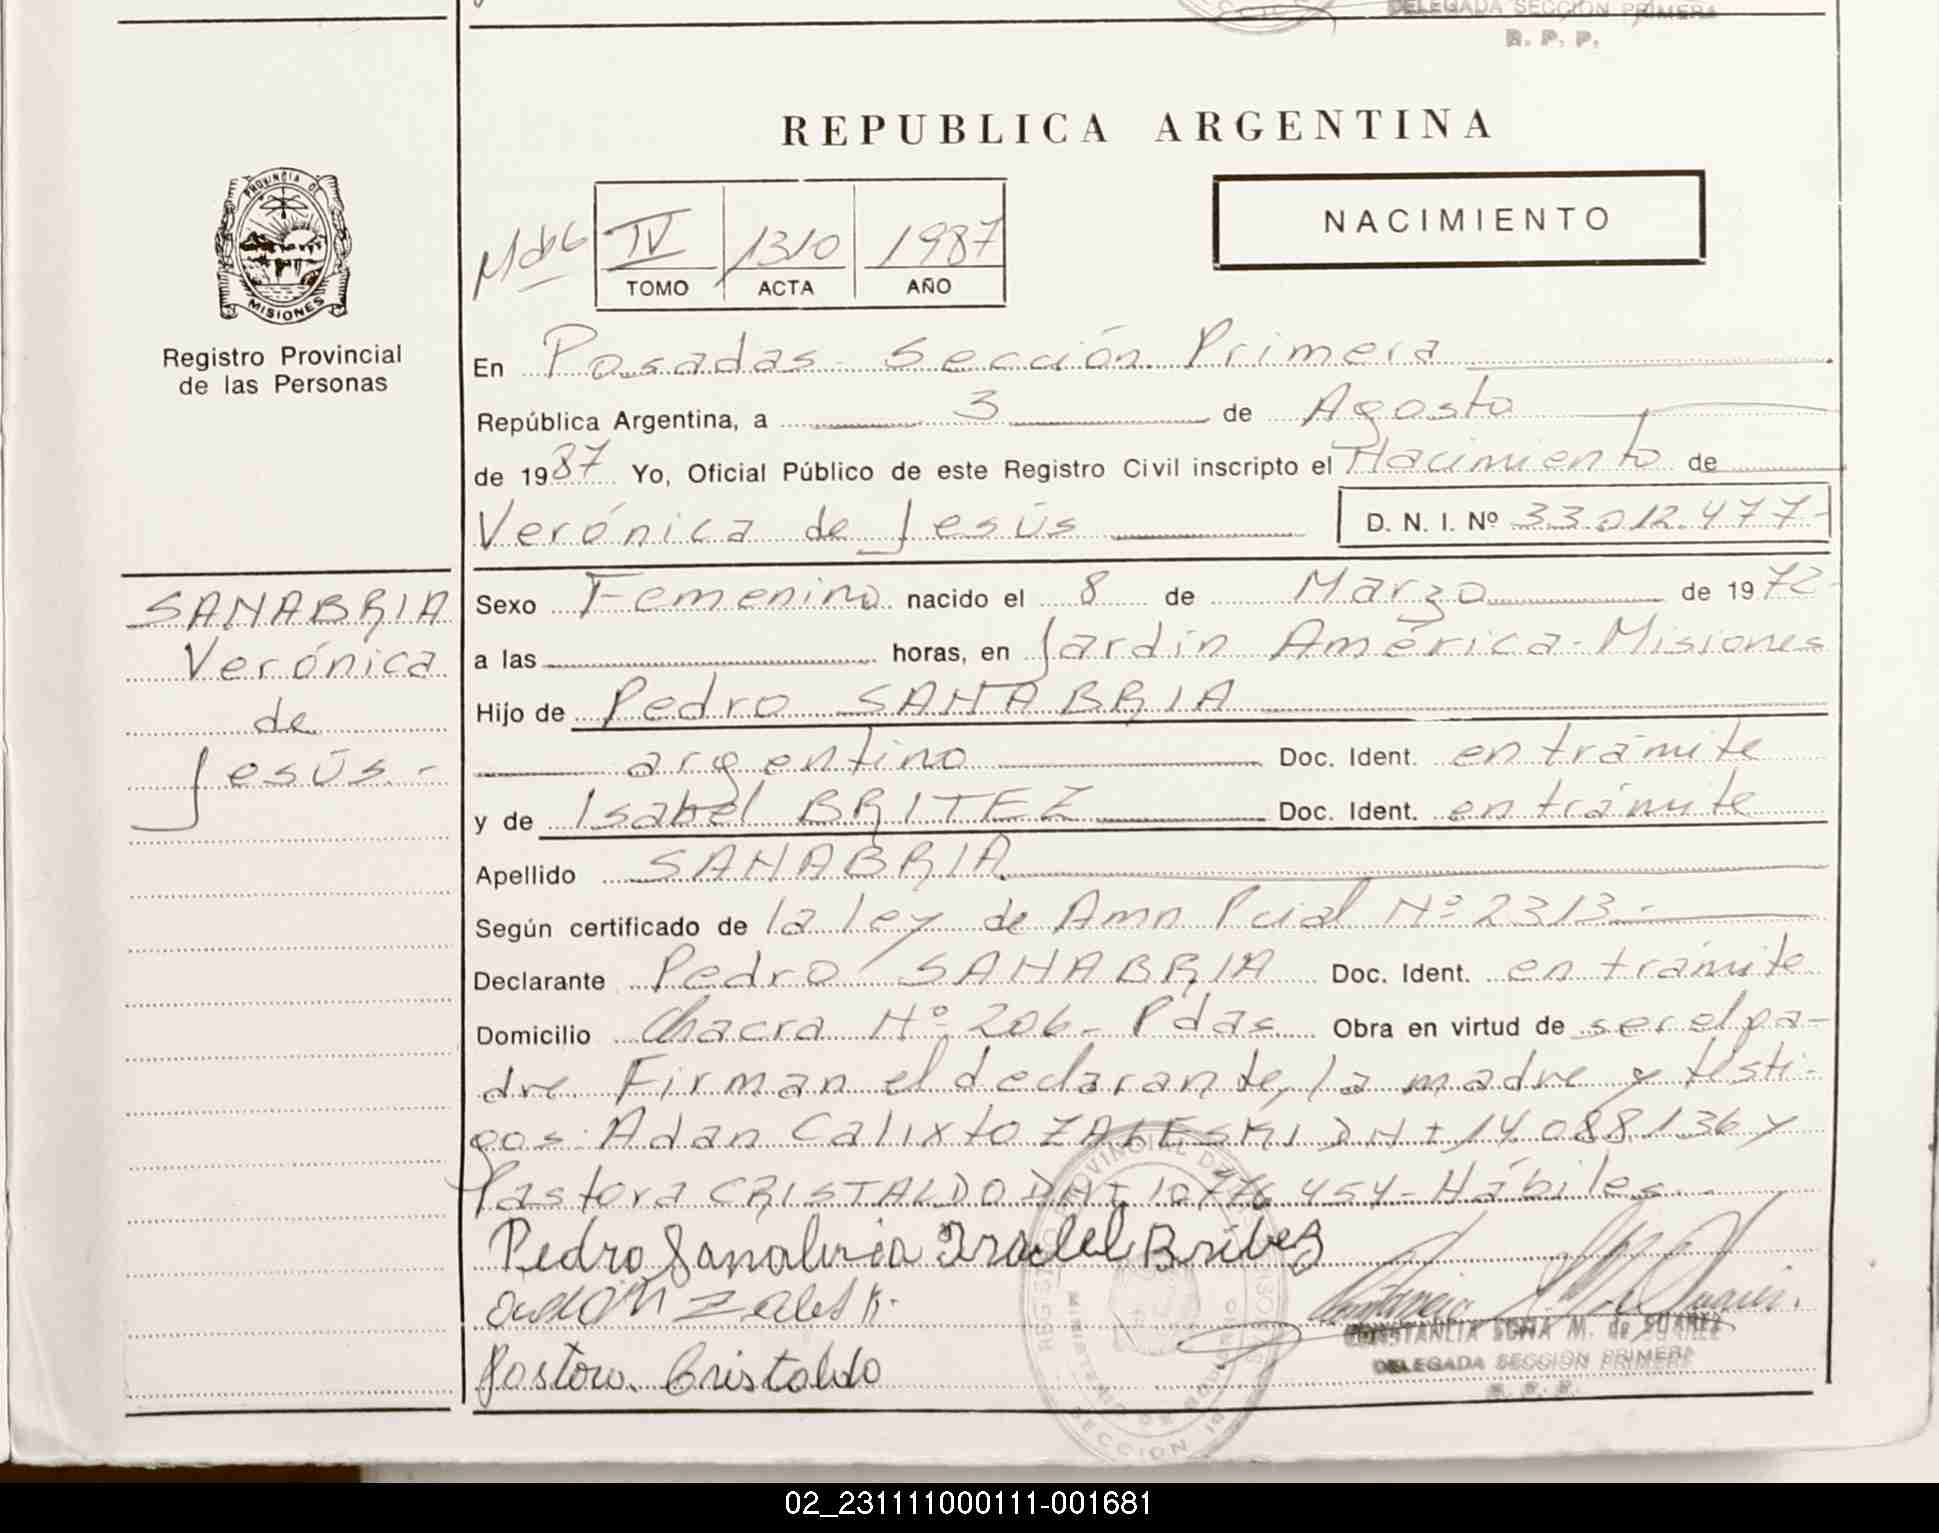 DELEGADA SECCION PRIMERA
R. P. P.
REPUBLICA ARGENTINA
NACIMIENTO
IV 1310 1987
TOMO ACTA AÑO
PROVINCIA DE
MISIONES
Registro Provincial
de las Personas
En Posadas Sección Primera
República Argentina, a 3 de Agosto
de 1987 Yo, Oficial Público de este Registro Civil inscripto el Nacimiento de
Verónica de Jesús D. N. I. Nº 33.012.477-
SANABRIA
Verónica
de
Jesús.-
Sexo Femenino nacido el 8 de Marzo de 1972
a las horas, en Jardín América-Misiones
Hijo de Pedro SANABRIA
argentino Doc. Ident. en trámite
y de Isabel BRITEZ Doc. Ident. en trámite
Apellido SANABRIA
Según certificado de la ley de Amn Pcial Nº 2313-
Declarante Pedro SANABRIA Doc. Ident. en trámite
Domicilio Chacra Nº 206- Pdas Obra en virtud de ser el pa-
dre. Firman el declarante, la madre y testi-
gos: Adan Calixto ZALESKI DNI 14.088136 y
Pastora CRISTALDO DNI 10776454- Hábiles.
Pedro Sanabria Isabel Britez
Adan Zaleski
Pastora Cristaldo
CONSTANCIA SONIA M. de SUAREZ
DELEGADA SECCION PRIMERA
R. P. P.
02_231111000111-001681